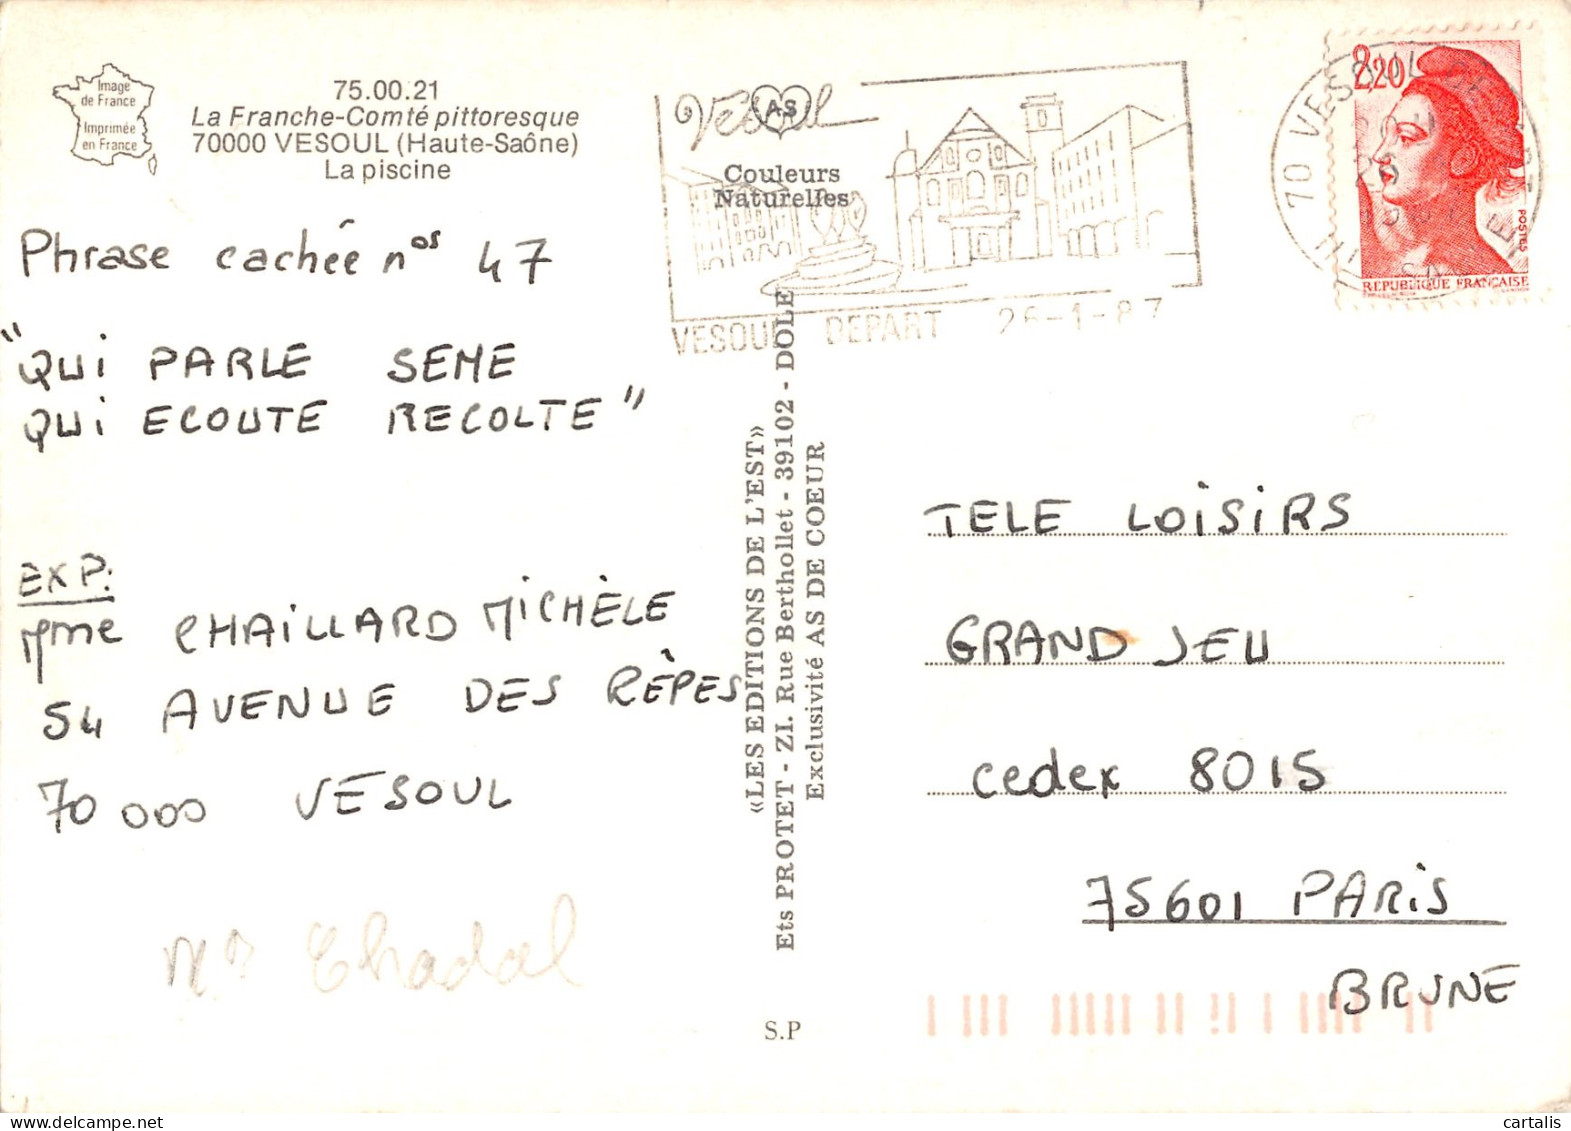 Image
de France
Imprimée
en France
75.00.21
La Franche-Comté pittoresque
70000 VESOUL (Haute-Saône)
La piscine
Phrase cachée nos 47
"QUI PARLE SEME
QUI ECOUTE RECOLTE"
EXP:
Mme CHAILLARD MICHÈLE
54 AVENUE DES RÈPES
70 000 VESOUL
Vesoul
AS
Couleurs
Naturelles
VESOUL DEPART 26-1-87
«LES EDITIONS DE L'EST»
Ets PROTET - ZI. Rue Berthollet - 39102 - DOLE
Exclusivité AS DE COEUR
S.P
70 VESOUL
2,20
POSTES
REPUBLIQUE FRANÇAISE
TELE LOISIRS
GRAND JEU
cedex 8015
75601 PARIS
BRUNE
cartalis